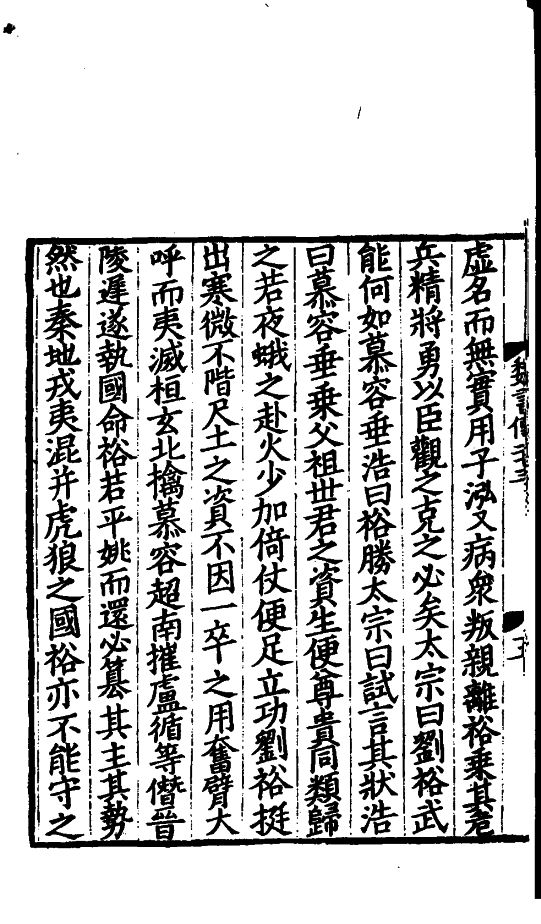 虛名而無實用子泓又病衆叛親離裕乗其危
兵精將勇以臣觀之克之必矣太宗曰劉裕武
能何如慕容垂浩曰裕勝太宗曰試言其狀浩
曰慕容垂乗父祖丗君之資生便尊貴同類歸
之若夜蛾之赴火少加倚仗便足立功劉裕挺
出寒微不階尺土之資不因一卒之用奮臂大
呼而夷滅桓玄北擒慕容超南摧盧循等僭晉
陵遲遂執國命裕若平姚而還必篡其主其勢
然也秦地戎夷混并虎狼之國裕亦不能守之